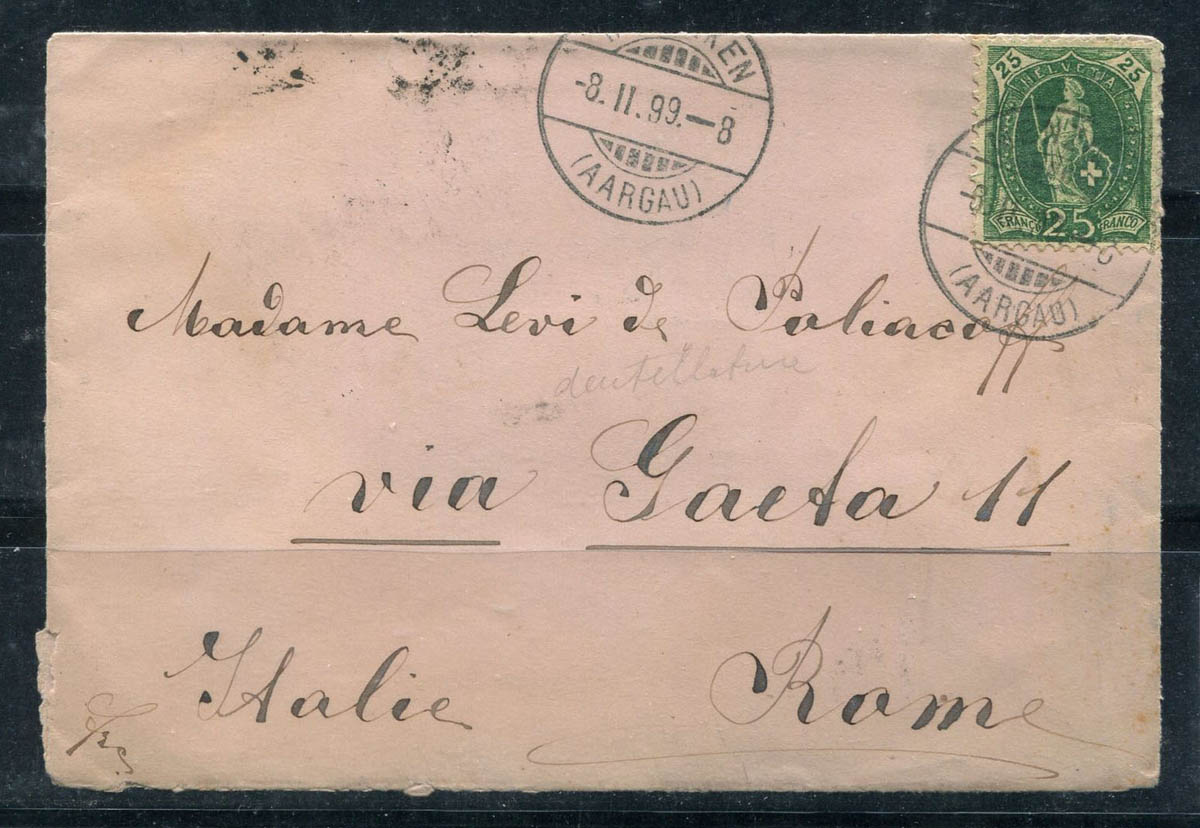 -8. II. 99. — 8
(AARGAU)
25 HELVETIA 25
FRANCO 25 FRANCO
(AARGAU)
Madame Levi de Poliacoff
dentellature
via Gaeta 11
Italie Rome